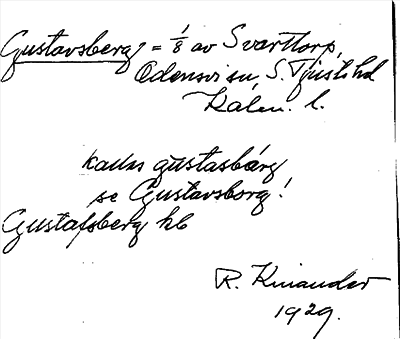 Gustavsberg, = 1/8 av Svarttorp,
Odensvi sn, S. Tjusts hd
Kalm. l.
kallas gustasbárg
se Gustavsborg!
Gustafsberg hb
R. Kinander
1929.